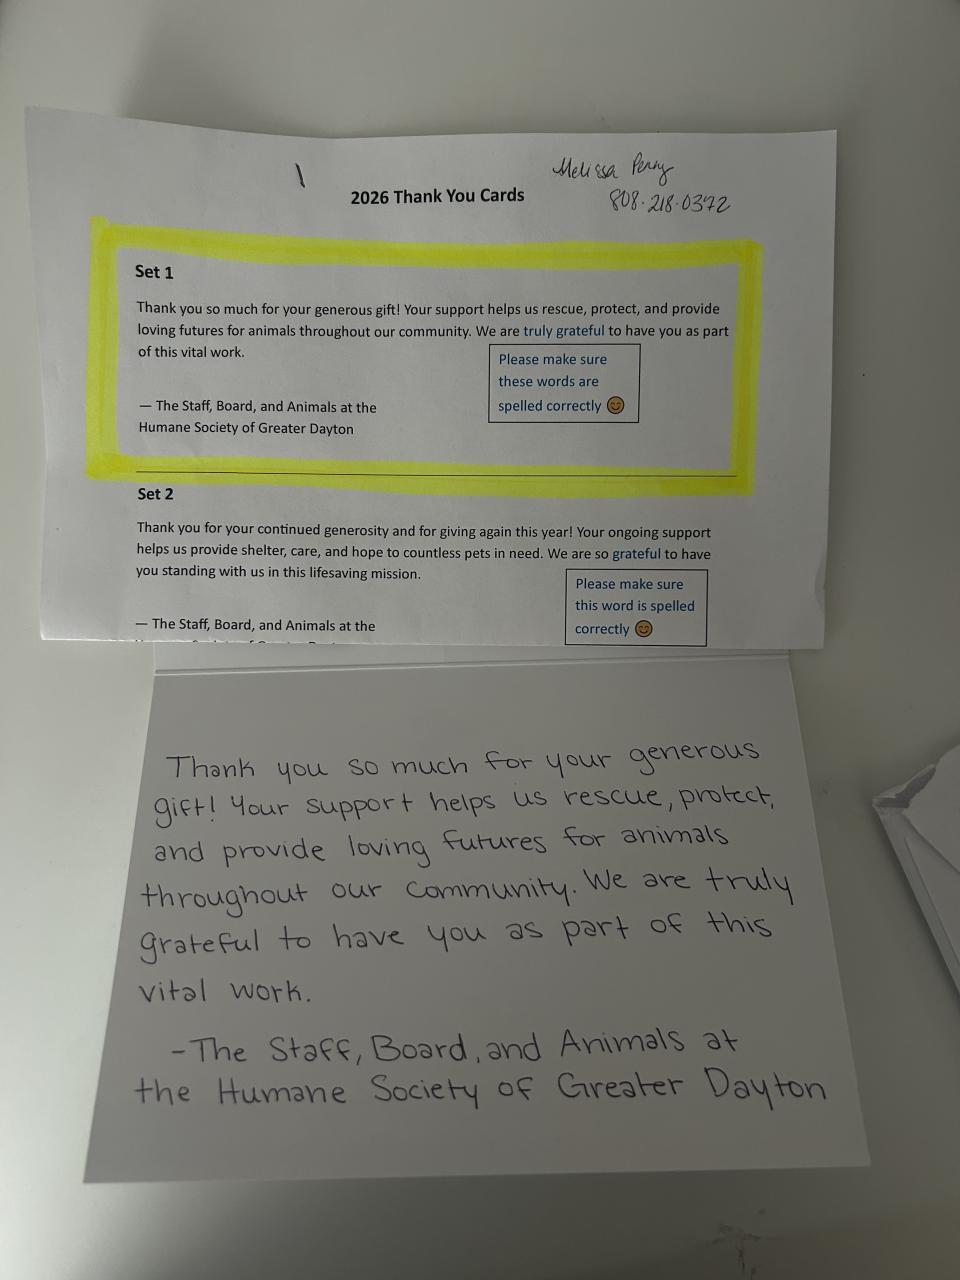 \
Melissa Perry
808·218·0372
2026 Thank You Cards
Set 1
Thank you so much for your generous gift! Your support helps us rescue, protect, and provide
loving futures for animals throughout our community. We are truly grateful to have you as part
of this vital work.
Please make sure
these words are
spelled correctly 😊
— The Staff, Board, and Animals at the
Humane Society of Greater Dayton
Set 2
Thank you for your continued generosity and for giving again this year! Your ongoing support
helps us provide shelter, care, and hope to countless pets in need. We are so grateful to have
you standing with us in this lifesaving mission.
Please make sure
this word is spelled
correctly 😊
— The Staff, Board, and Animals at the
Thank you so much for your generous
gift! Your support helps us rescue, protect,
and provide loving futures for animals
throughout our community. We are truly
grateful to have you as part of this
vital work.
-The Staff, Board, and Animals at
the Humane Society of Greater Dayton